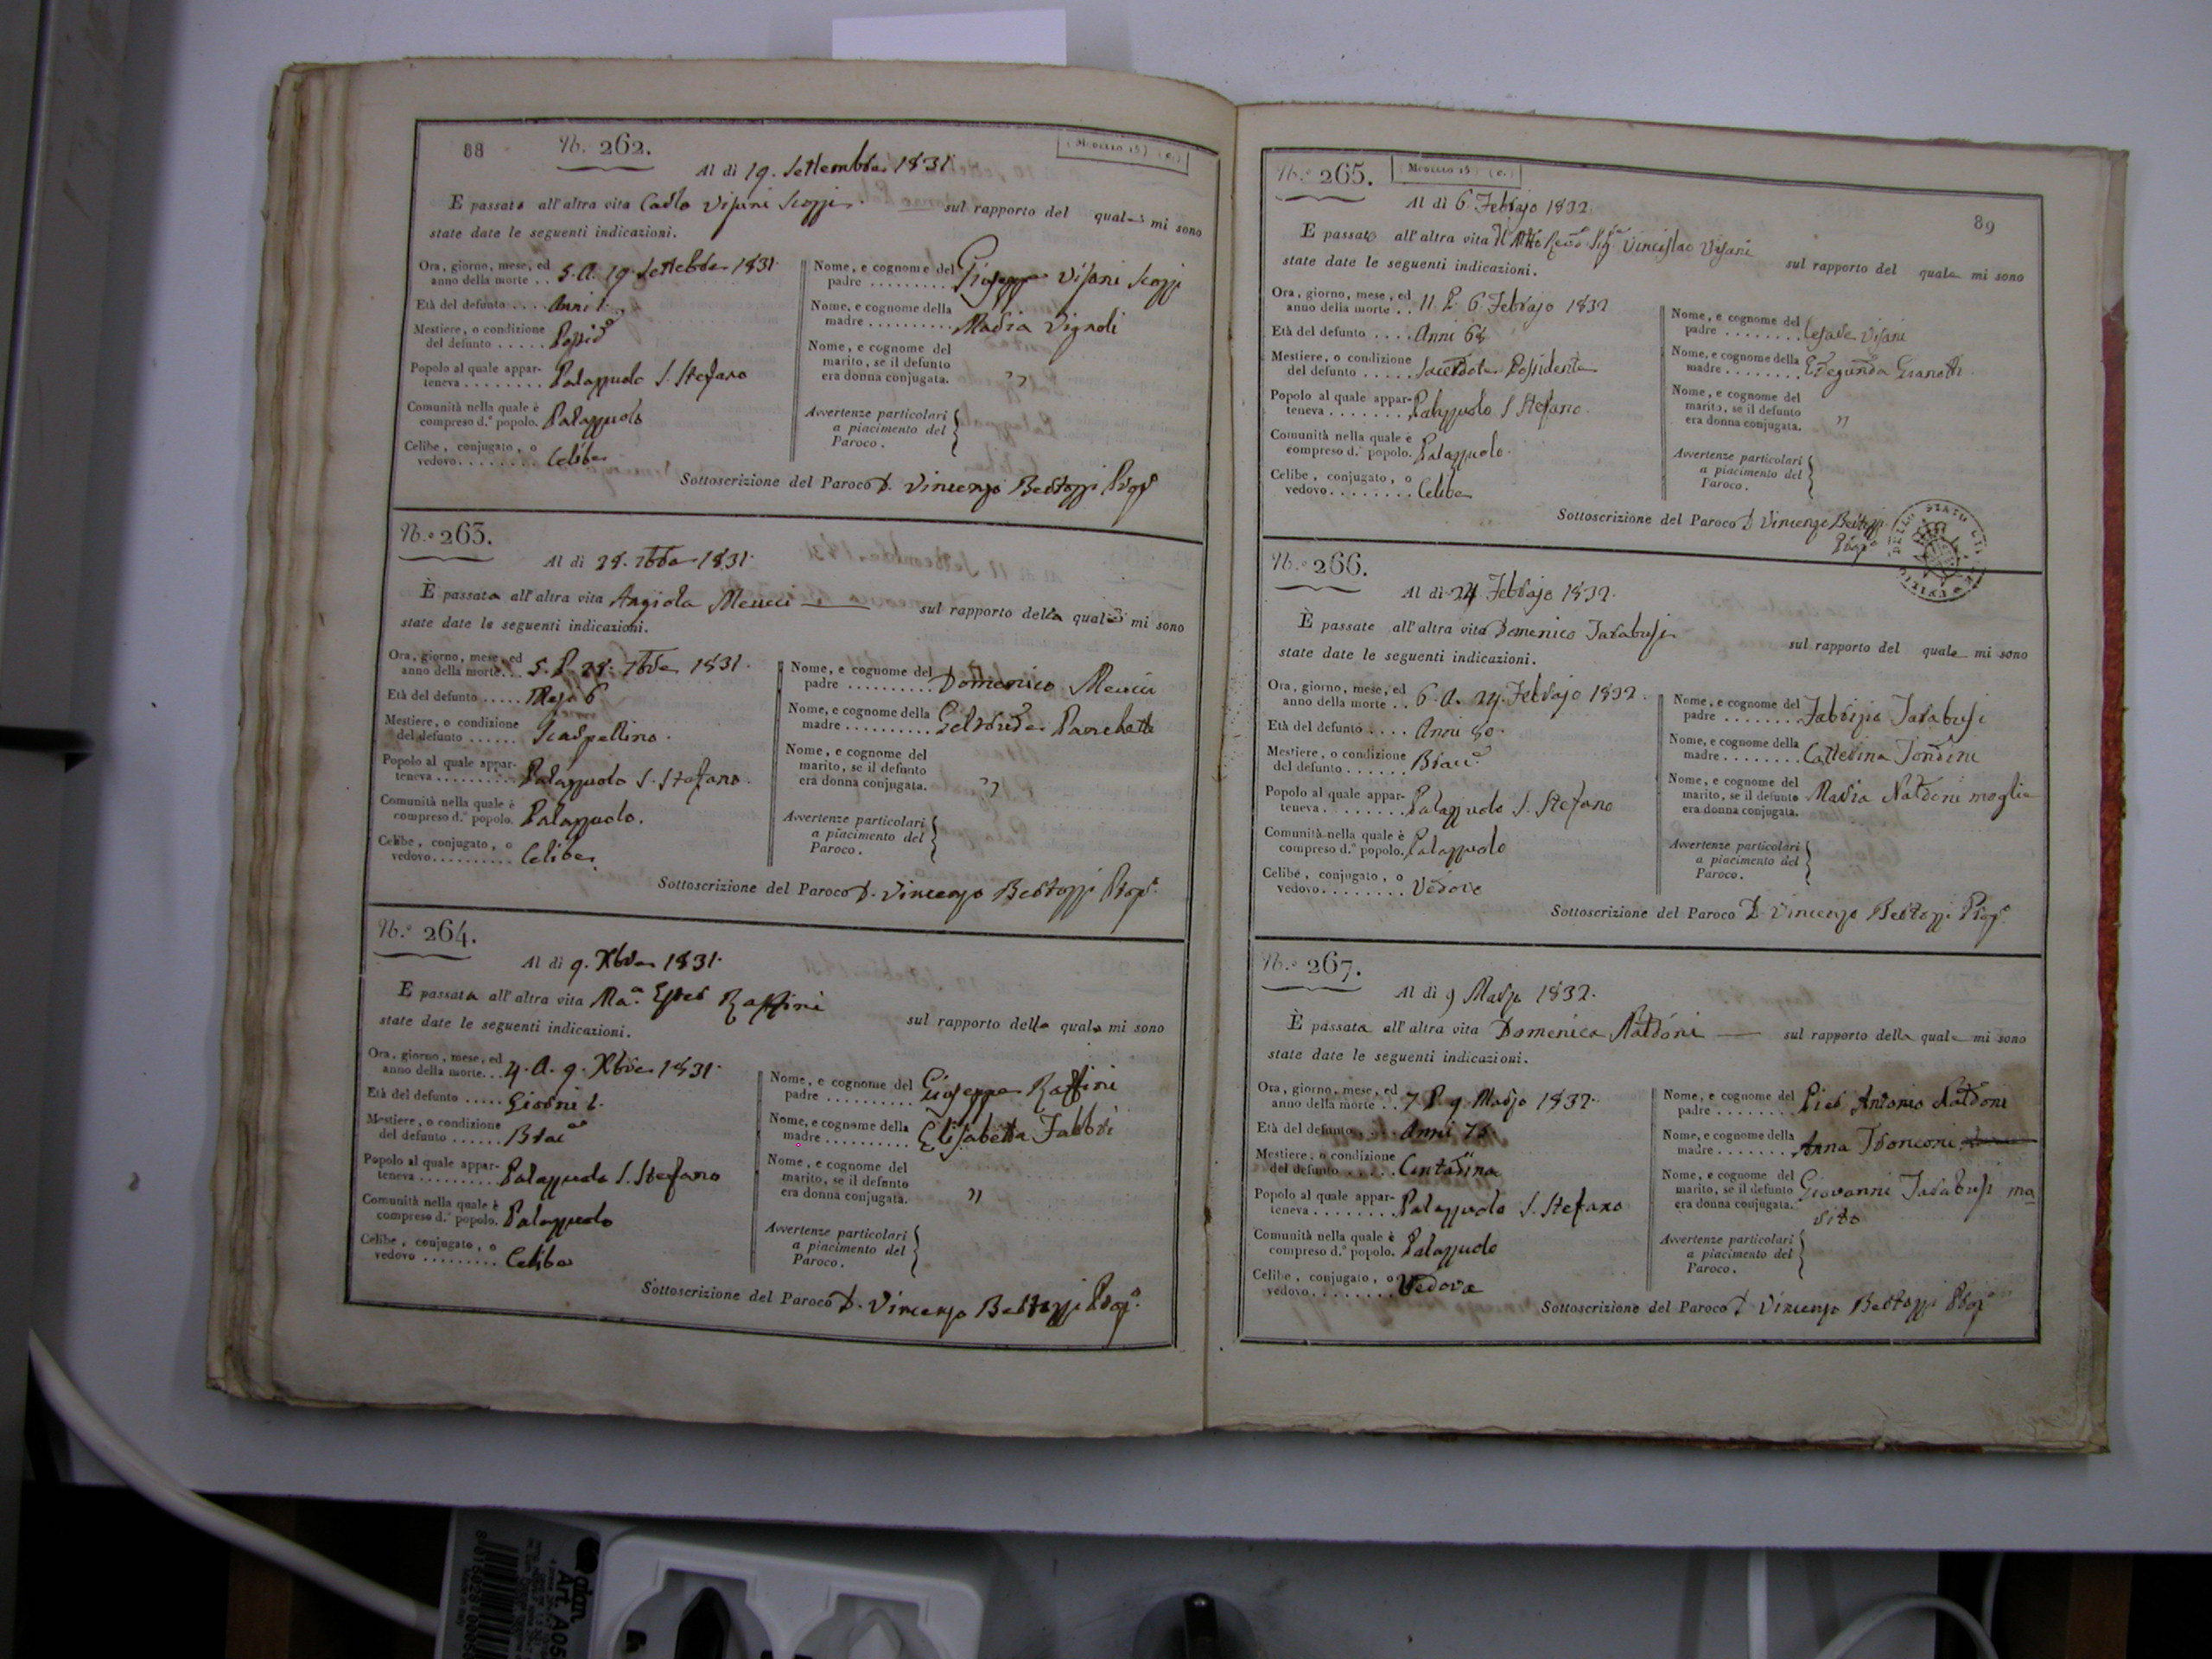 88
N.º 262.
(Modello 15) (c.)
Al dì 19. Settembre 1831.
È passato all'altra vita Carlo Visani Scozzi. sul rapporto del quale mi sono
state date le seguenti indicazioni.
Ora, giorno, mese, ed
anno della morte . . 5. A. 19. Settebre 1831.
Età del defunto . . . . Anni
Mestiere, o condizione
del defunto . . . . . Possid
Popolo al quale appar-
teneva . . . . . . . . Palazzuolo S. Stefano
Comunità nella quale è
compreso d.º popolo. Palazzuolo
Celibe, conjugato, o
vedovo. . . . . . . . Celibe
Nome, e cognome del
padre . . . . . . . . . Giuseppe Visani Scozzi
Nome, e cognome della
madre . . . . . . . . . Maria Vignoli
Nome, e cognome del
marito, se il defunto
era donna conjugata. "
Avvertenze particolari
a piacimento del
Paroco.
Sottoscrizione del Paroco D. Vincenzo Bertozzi Prop.
N.º 263.
Al dì 28. 7bre 1831.
È passata all'altra vita Angiola Meucci sul rapporto della quale mi sono
state date le seguenti indicazioni.
Ora, giorno, mese, ed
anno della morte. . . 5. P. 28. 7bre 1831.
Età del defunto . . . . . Mesi 6
Mestiere, o condizione
del defunto . . . . . . Scarpellino.
Popolo al quale appar-
teneva . . . . . . . . . Palazzuolo S. Stefano.
Comunità nella quale è
compreso d.º popolo. Palazzuolo.
Celibe, conjugato, o
vedovo. . . . . . . . . . Celibe
Nome, e cognome del
padre . . . . . . . . . . Domenico Meucci
Nome, e cognome della
madre . . . . . . . . . . Geltrude Panchetti
Nome, e cognome del
marito, se il defunto
era donna conjugata. "
Avvertenze particolari
a piacimento del
Paroco.
Sottoscrizione del Paroco D. Vincenzo Bertozzi Prop.
N.º 264.
Al dì 9. Xbre 1831.
È passata all'altra vita Ma. Ester Raffini sul rapporto della quale mi sono
state date le seguenti indicazioni.
Ora, giorno, mese, ed
anno della morte. . . 4. A. 9. Xbre 1831.
Età del defunto . . . . . Giorni
Mestiere, o condizione
del defunto . . . . . . Brac
Popolo al quale appar-
teneva . . . . . . . . . . Palazzuolo S. Stefano
Comunità nella quale è
compreso d.º popolo. Palazzuolo
Celibe, conjugato, o
vedovo . . . . . . . . . Celibe
Nome, e cognome del
padre . . . . . . . . . . Giuseppe Raffini
Nome, e cognome della
madre . . . . . . . . . . Elisabetta Fabbri
Nome, e cognome del
marito, se il defunto
era donna conjugata. "
Avvertenze particolari
a piacimento del
Paroco.
Sottoscrizione del Paroco D. Vincenzo Bertozzi Prop.
N.º 265.
(Modello 15) (c.)
89
Al dì 6 Febrajo 1832
È passato all'altra vita Il Sig. Vincislao Visani sul rapporto del quale mi sono
state date le seguenti indicazioni.
Ora, giorno, mese, ed
anno della morte . . 11. P. 6 Febrajo 1832
Età del defunto . . . . Anni
Mestiere, o condizione
del defunto . . . . . Sacerdote Possidente
Popolo al quale appar-
teneva . . . . . . . . Palazzuolo S Stefano.
Comunità nella quale è
compreso d.º popolo. Palazzuolo.
Celibe, conjugato, o
vedovo. . . . . . . . Celibe
Nome, e cognome del
padre . . . . . . . . Cesare Visani
Nome, e cognome della
madre . . . . . . . .
Nome, e cognome del
marito, se il defunto
era donna conjugata. "
Avvertenze particolari
a piacimento del
Paroco.
Sottoscrizione del Paroco D Vincenzo Bertozzi
Prop.
N.º 266.
Al dì 24 Febrajo 1832.
È passato all'altra vita Domenico Tarabusi sul rapporto del quale mi sono
state date le seguenti indicazioni.
Ora, giorno, mese, ed
anno della morte . . 6. A. 24. Febrajo 1832.
Età del defunto . . . . Anni 80.
Mestiere, o condizione
del defunto . . . . . . Brac
Popolo al quale appar-
teneva . . . . . . . . Palazzuolo S. Stefano
Comunità nella quale è
compreso d.º popolo. Palazzuolo
Celibe, conjugato, o
vedovo. . . . . . . . Vedovo
Nome, e cognome del
padre . . . . . . . . Fabrizio Tarabusi
Nome, e cognome della
madre . . . . . . . . Catterina Tondini
Nome, e cognome del
marito, se il defunto Maria Naldoni moglie
era donna conjugata.
Avvertenze particolari
a piacimento del
Paroco.
Sottoscrizione del Paroco D. Vincenzo Bertozzi Prop.
N.º 267.
Al dì 9 Marzo 1832.
È passata all'altra vita Domenica Naldoni sul rapporto della quale mi sono
state date le seguenti indicazioni.
Ora, giorno, mese, ed
anno della morte . . 7. P. 9. Marzo 1832.
Età del defunto . . . . Anni
Mestiere, o condizione
del defunto . . . . . . Contadina
Popolo al quale appar-
teneva . . . . . . . . Palazzuolo S. Stefano
Comunità nella quale è
compreso d.º popolo. Palazzuolo
Celibe, conjugato, o
vedovo. . . . . . . . Vedova
Nome, e cognome del
padre . . . . . . . . Pier Antonio Naldoni
Nome, e cognome della
madre . . . . . . . . Anna Tronconi
Nome, e cognome del
marito, se il defunto Giovanni Tarabusi ma
era donna conjugata.
rito
Avvertenze particolari
a piacimento del
Paroco.
Sottoscrizione del Paroco D Vincenzo Bertozzi Prop.
adam
Art. A05